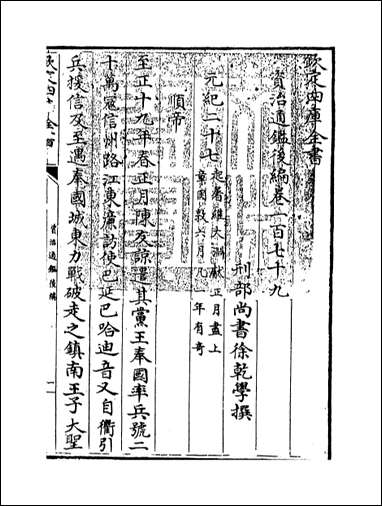 欽定四庫全書
資治通鑑後編卷一百七十九
刑部尚書徐乾學撰
元紀二十七起屠維大淵獻正月盡上章困敦六月凡一年有奇
順帝
至正十九年春正月陳友諒遣其黨王奉國率兵號二
十萬寇信州路江東廉訪使巴延巴哈迪音又自衢引
兵援信及至遇奉國城東力戰破走之鎮南王子大聖
欽定四庫全書
資治通鑑後編
一